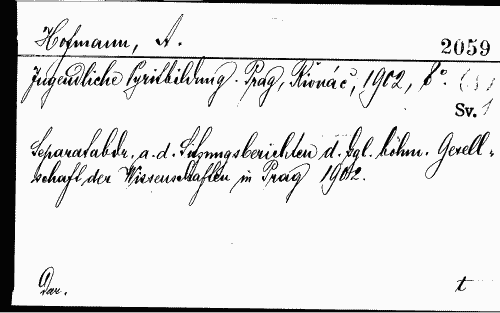 Hofmann, A.
2059
Jugendliche Pyritbildung. Prag, Řivnáč, 1902, 8°. (8)
Sv. 1
Separatabdr. a. d. Sitzungsberichten d. kgl. böhm. Gesell-
schaft der Wissenschaften in Prag 1902.
Dar. t